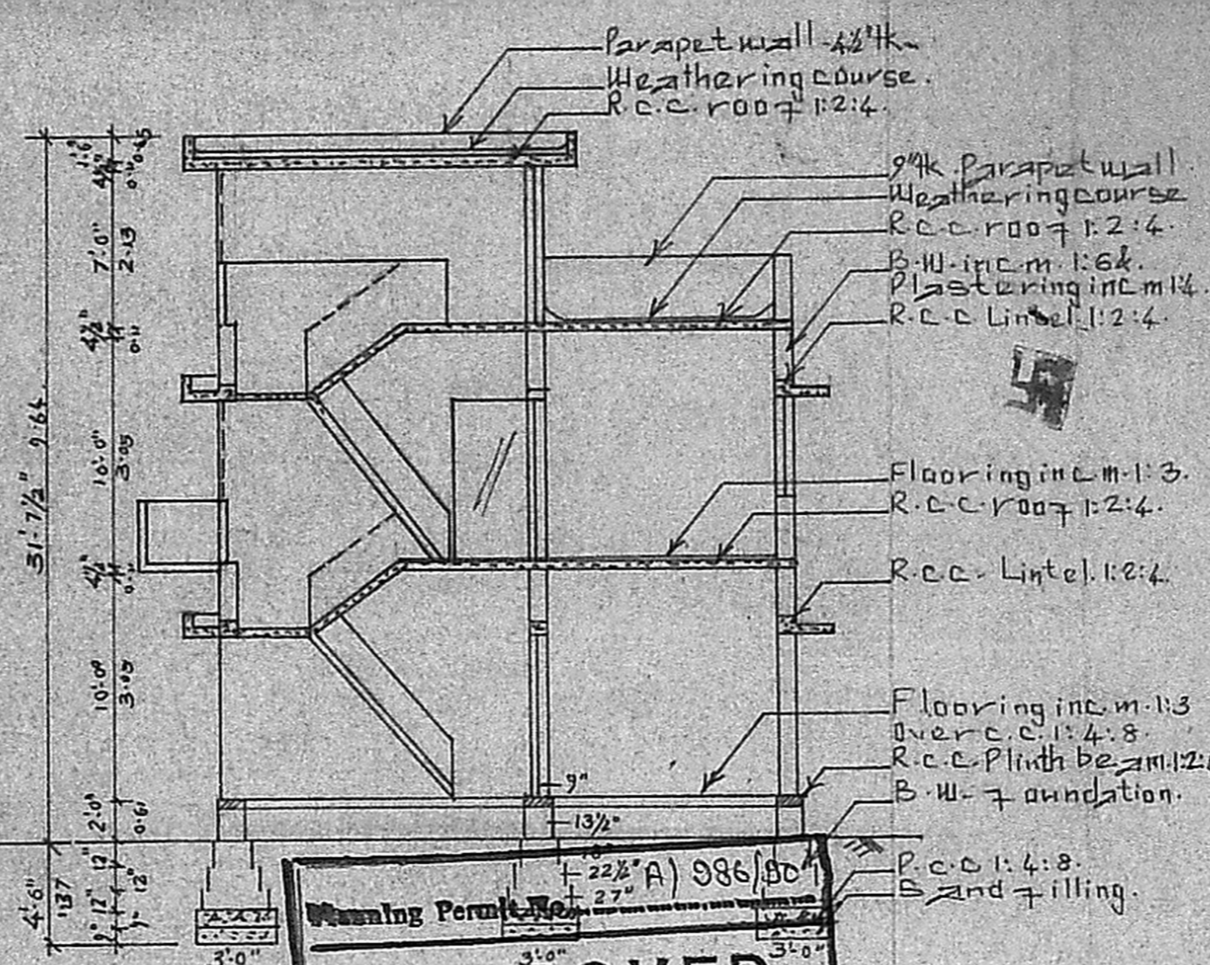 Parapet wall 4½" tk
Weathering course.
R.C.C. roof 1:2:4.
9" tk. Parapet wall
Weathering course
R.C.C. roof 1:2:4.
B.W. in c.m. 1:6 &
Plastering in c m 1:4.
R.C.C Lintel 1:2:4.
Flooring in c.m. 1:3.
R.C.C. roof 1:2:4.
R.C.C. Lintel. 1:2:4.
Flooring in c.m. 1:3
Over c.c. 1:4:8.
R.C.C. Plinth beam 1:2:
B.W. foundation.
P.C.C 1:4:8.
Sand filling.
1'.6"
4½"
0.11
7'.0"
2.13
4½"
0.11
31'-7½" 9.64
10'.0"
3.05
4½"
10'.0"
3.05
2'.0"
0.61
4'-6"
1.37
12"
12"
12"
9"
9"
13½"
18"
22½"
27"
3'.0"
3'.0"
3'.0"
A) 986/90
Planning Permit No